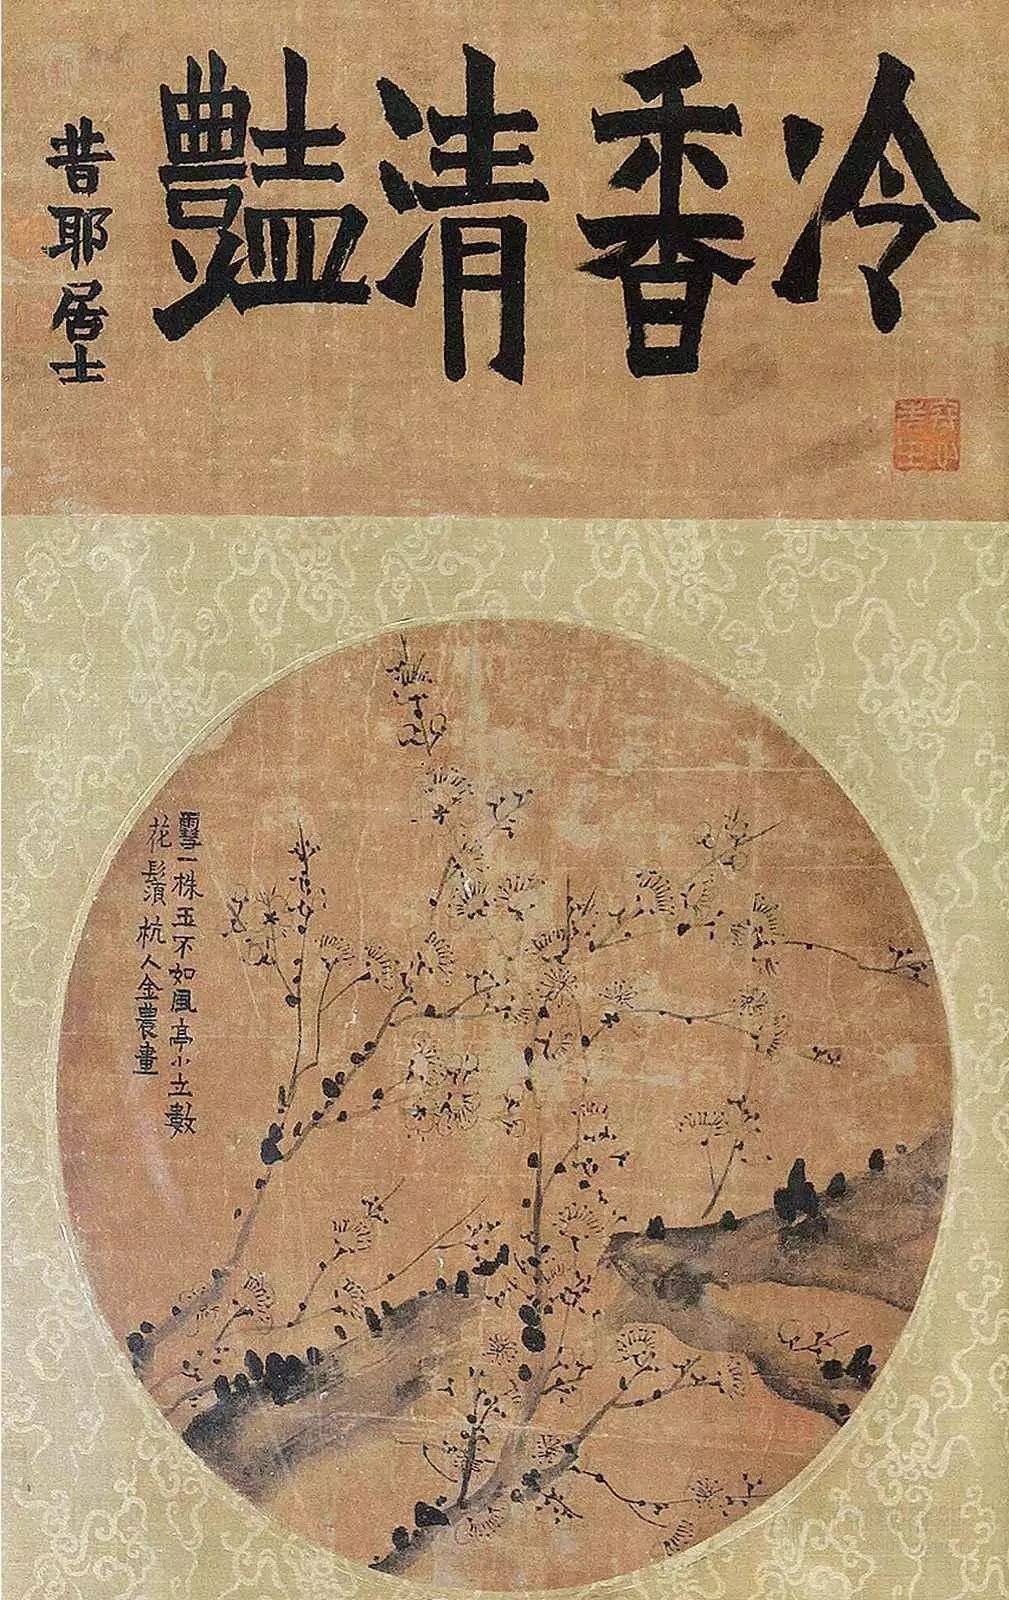 冷香清豔
昔耶居士
雪一株玉不如風亭小立數
花鬚
杭人金農畫